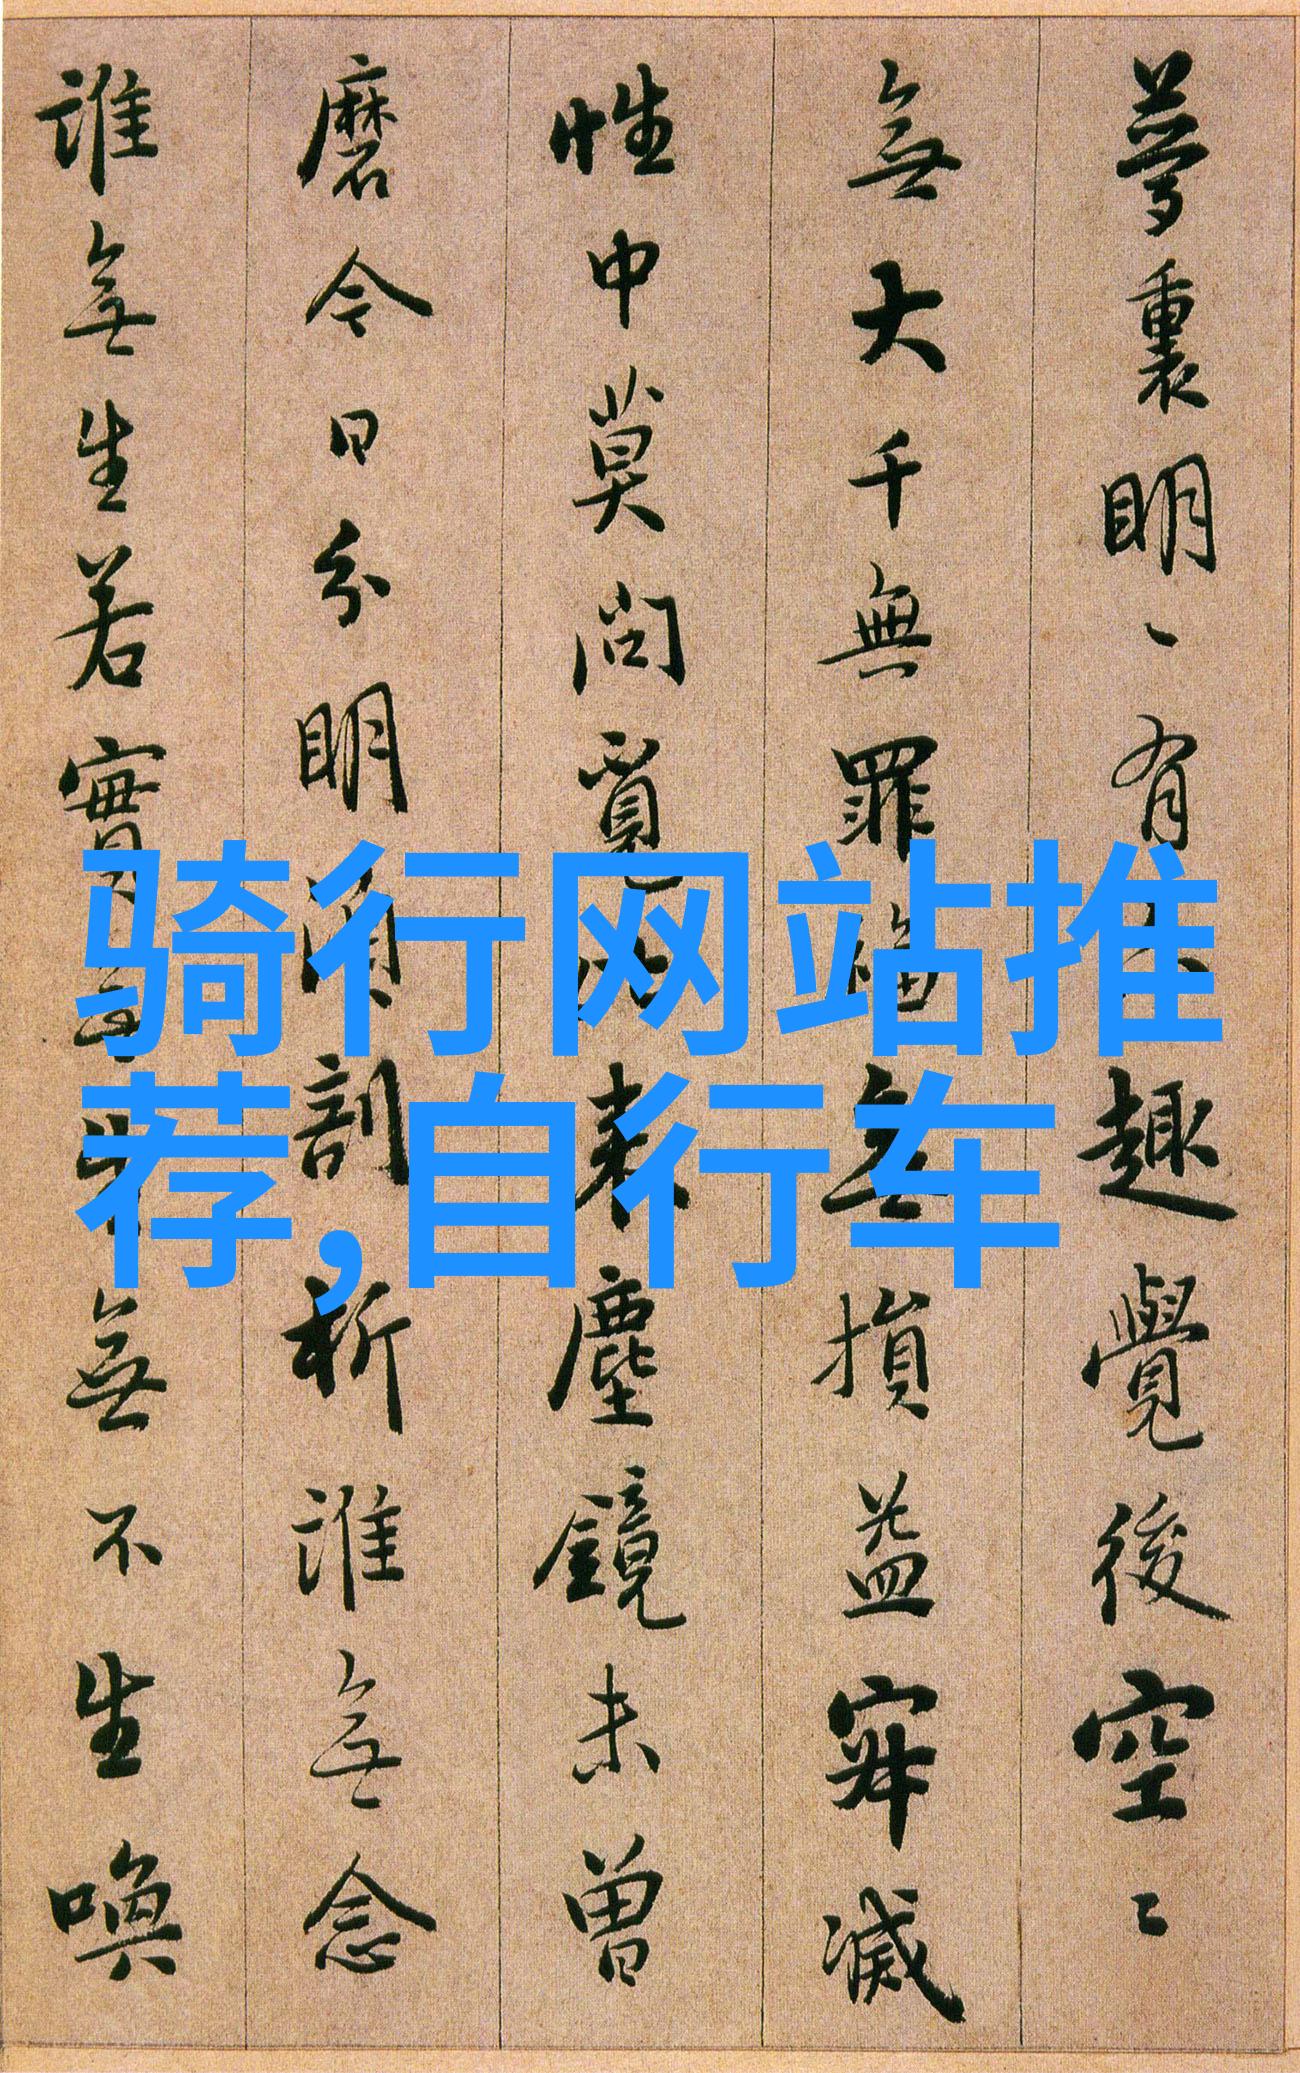 夢裏明丶有趣覺後空〻
無大千無罪福無損益寂滅
性中莫問覓比来塵鏡未曾
磨今日分明須剖析誰無念
誰無生若實無生無不生喚
骑行网站推
荐,自行车